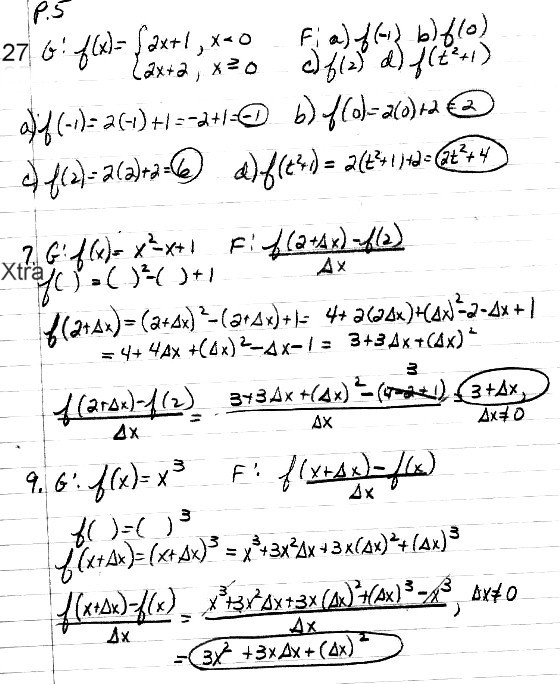 P.5
27 G: f(x) = {2x+1, x<0 F: a) f(-1) b) f(0)
{2x+2, x≥0 c) f(2) d) f(t²+1)
a) f(-1) = 2(-1)+1 = -2+1 = -1 b) f(0) = 2(0)+2 = 2
c) f(2) = 2(2)+2 = 6 d) f(t²+1) = 2(t²+1)+2 = 2t²+4
7. G: f(x) = x²-x+1 F: f(2+Δx)-f(2) / Δx
Xtra f( ) = ( )²-( )+1
f(2+Δx) = (2+Δx)²-(2+Δx)+1 = 4+2(2Δx)+(Δx)²-2-Δx+1
= 4+4Δx+(Δx)²-Δx-1 = 3+3Δx+(Δx)²
f(2+Δx)-f(2) / Δx = 3+3Δx+(Δx)²-(4-2+1) 3 / Δx = 3+Δx, Δx≠0
9. G: f(x) = x³ F: f(x+Δx)-f(x) / Δx
f( ) = ( )³
f(x+Δx) = (x+Δx)³ = x³+3x²Δx+3x(Δx)²+(Δx)³
f(x+Δx)-f(x) / Δx = x³+3x²Δx+3x(Δx)²+(Δx)³-x³ / Δx, Δx≠0
= 3x²+3xΔx+(Δx)²